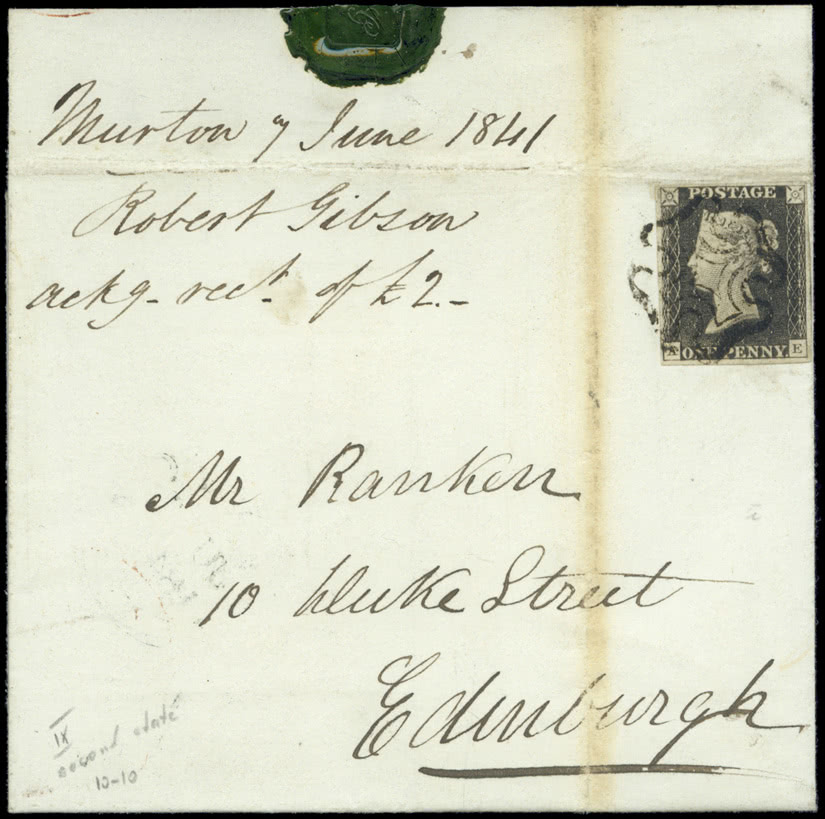 Murton 7 June 1841
Robert Gibson
ackg- rect. of £2.-
POSTAGE
A ONE PENNY. E
Mr Ranken
10 Duke Street
Edinburgh
IX
second state
10-10